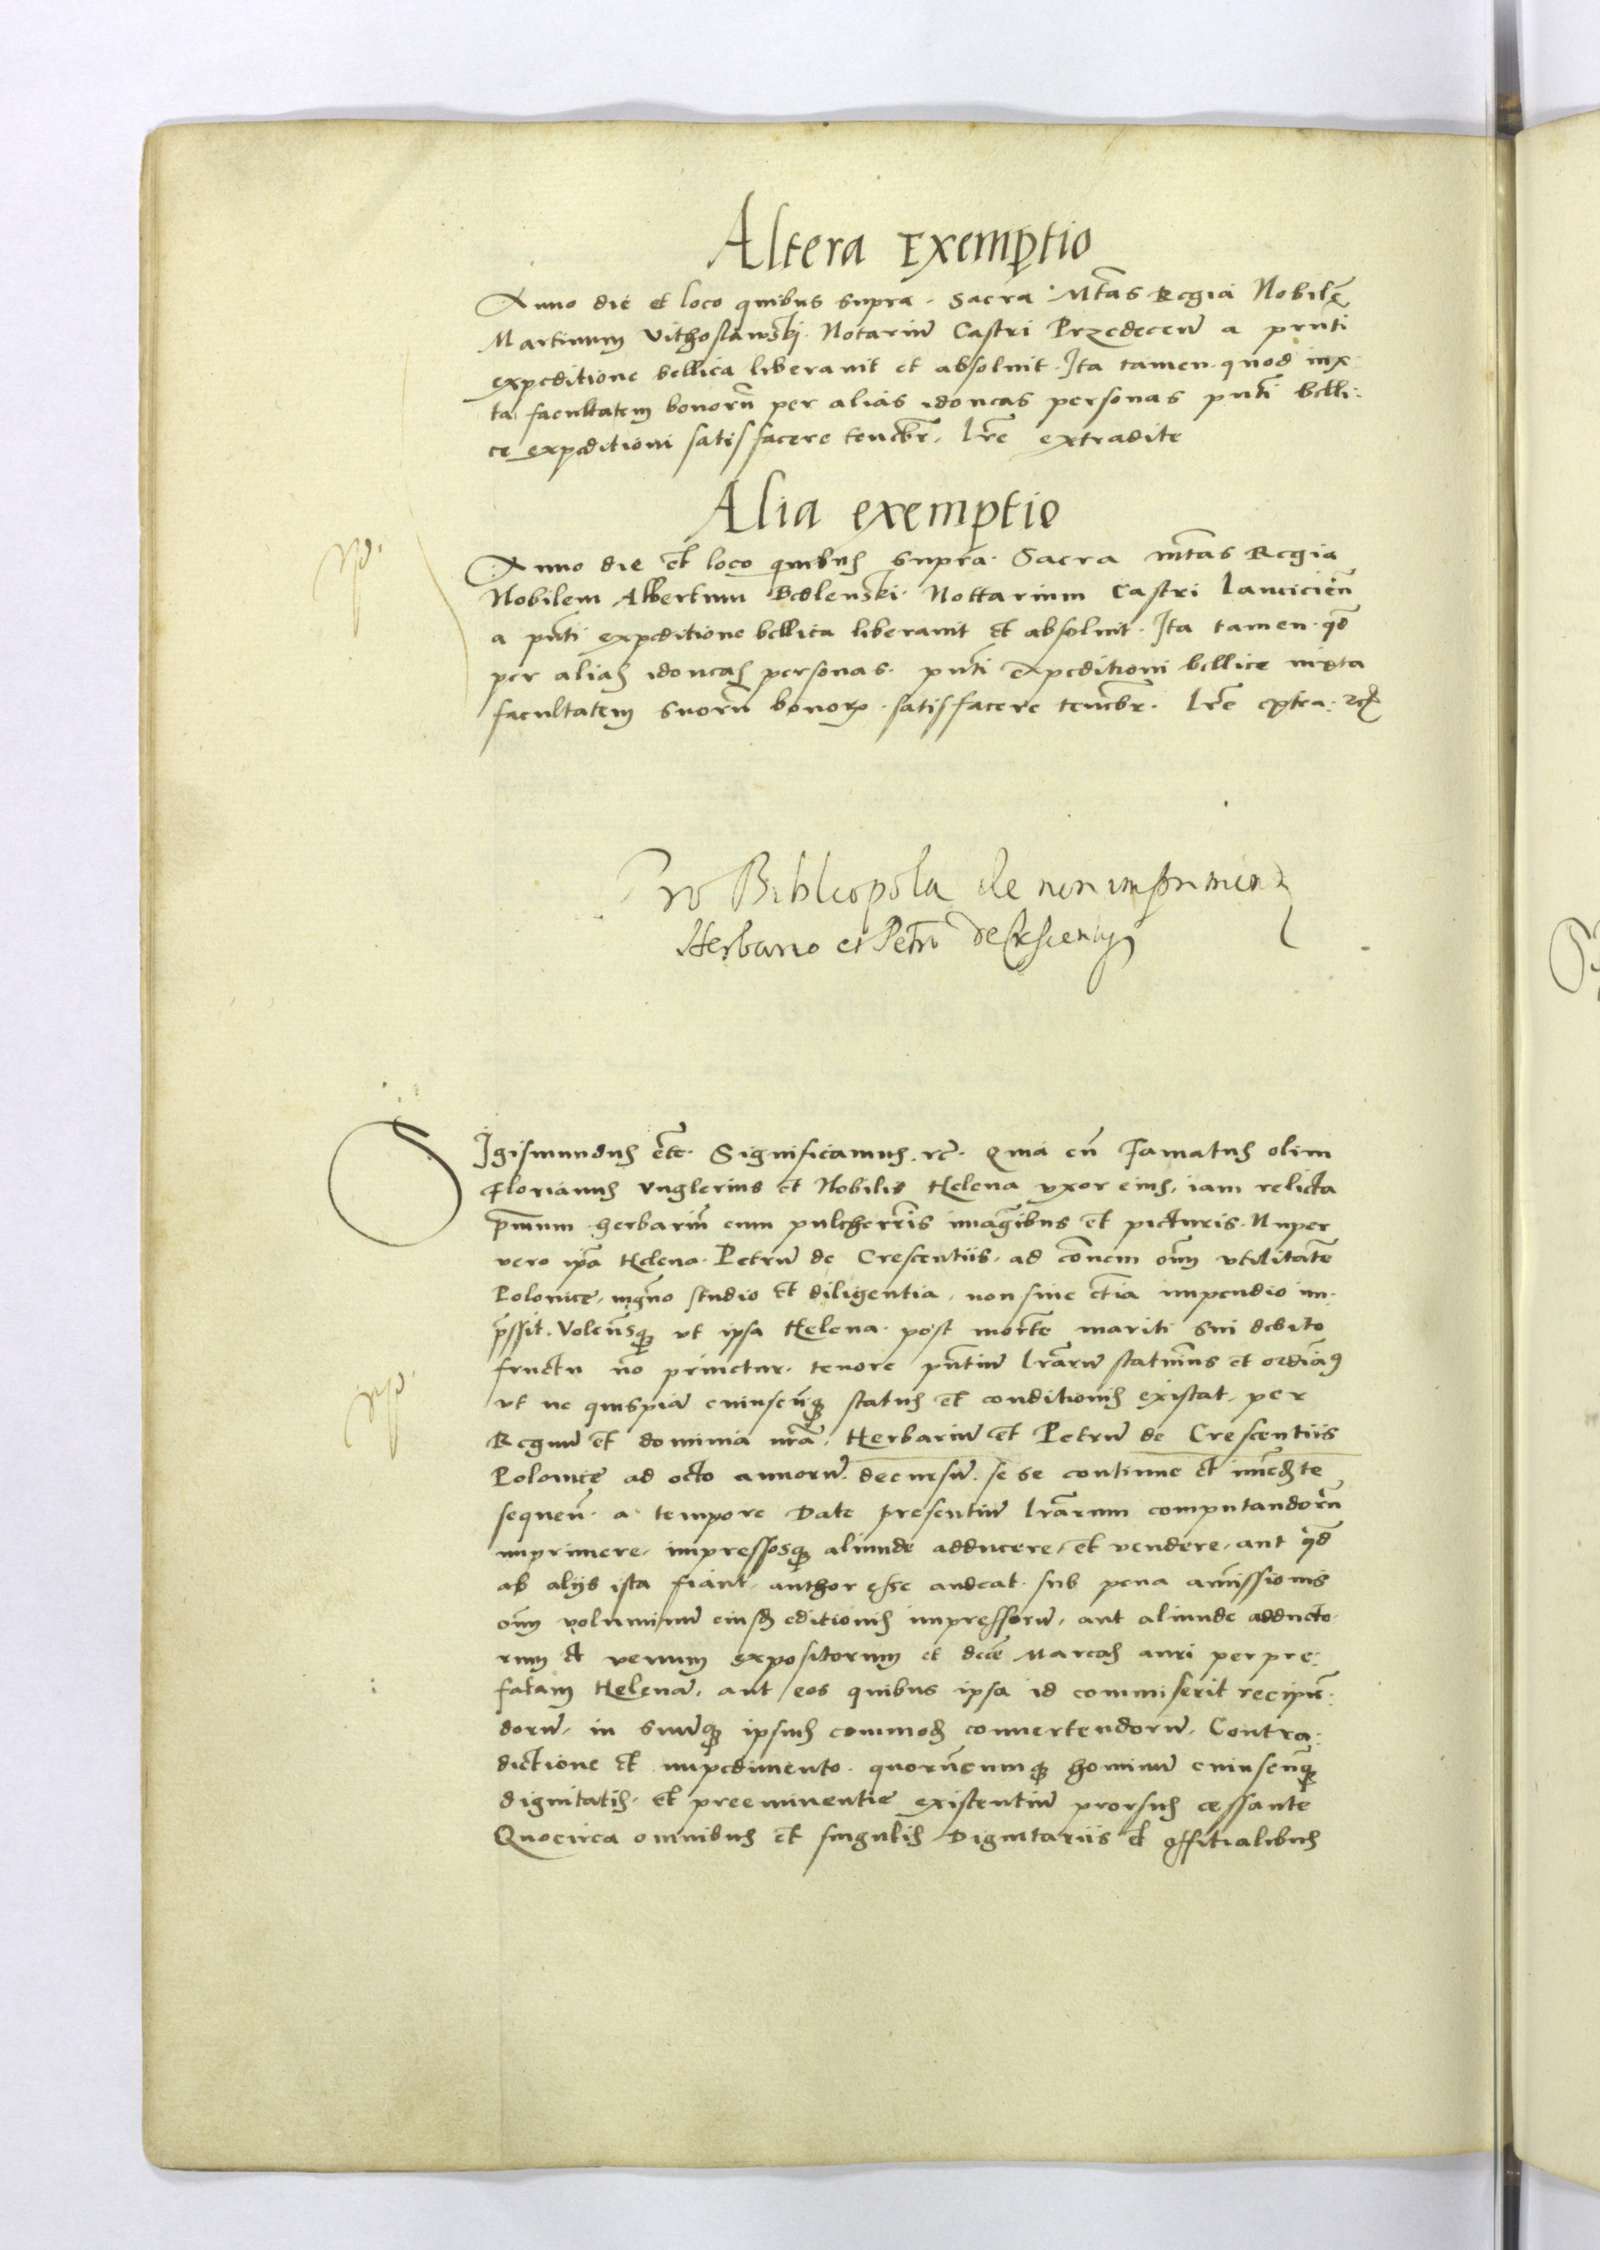 Altera Exemptio
Anno die et loco quibus supra. Sacra Mtas Regia Nobilē
Martinum Vithoslawskj. Notariū Castri Przedeceñ a prnti
expeditione bellica liberauit et absoluit. Ita tamen quod iux
ta facultatem bonorū per alias idoneas personas pnti belli:
ce expeditioni satisfacere teneb̃r. Lr̃e extradite
Alia exemptio
Anno die et loco quibus supra. Sacra mtas Regia
Nobilem Albertum Bedlenski. Nottarium Castri Lanciciēn
a pnti expeditione bellica liberauit et absoluit. Ita tamen qd
per alias idoneas personas. pnti expeditioni bellice iuxta
facultatem suorū bonorꝝ satisfacere teneb̃r. Lr̃e extra:
Pro Bibliopola de non imprimen
Herbario et Petro de Crescentijs
SIgismundus etc. Significamus. rc. Quia cū Famatus olim
Florianus Vnglerius et Nobilis Helena vxor eius, iam relicta
pmum herbariū cum pulcherris imagibus et picturis. Nuper
vero ipa Helena. Petrū de Crescentiis. ad cōnem om̄ vtilitatē
Polonice, mgno studio et diligentia, non sine etiā impendio im-
pssit. Volensqꝫ vt ipsa Helena post mortē mariti sui debito
fructu nō priuetur. tenore pntiū lrarū statuimus et ordiaꝰ
vt ne quispiā cuiuscūqꝫ status et conditionis existat, per
Regnū et dominia nrā, Herbariū et Petrū de Crescentiis
Polonice ad octo annorū decursū. se se continue et immedte
sequeñ. a tempore Date presentiū lrarum computandorū
imprimere, impressosqꝫ aliunde adducere, et vendere, aut qd
ab alijs ista fiant, author esse audeat sub pena amissionis
om̄ voluminū eiusd editionis impressorū, aut aliunde adducto-
rum et venum expositorum et dece Marcas auri per pre:
fatam Helenā, aut eos quibus ipsa id commiserit recipiē:
dorū, in suūqꝫ ipsius commod conuertendorū. Contra:
dictione et impedimento quorūcumqꝫ hominū cuiuscūqꝫ
dignitatis, et preeminentie existentiū prorsus cessante
Quocirca omnibus et singulis Dignitariis et officialibus